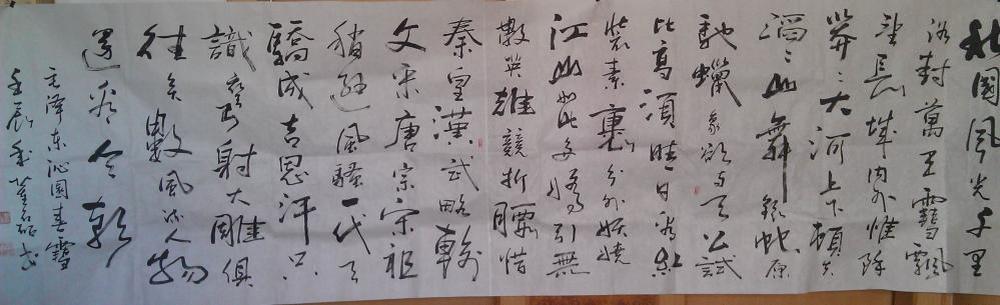 北國風光千里
冰封萬里雪飄
望長城內外惟餘
莽〻大河上下頓失
滔〻山舞銀蛇原
馳蠟象欲與天公試
比高須晴日看紅
裝素裹分外妖嬈
江山如此多嬌引無
數英雄競折腰惜
秦皇漢武略輸
文采唐宗宋祖
稍遜風騷一代天
驕成吉思汗只
識彎弓射大雕俱
往矣數風流人物
還看今朝
毛澤東沁園春雪
壬辰年董書